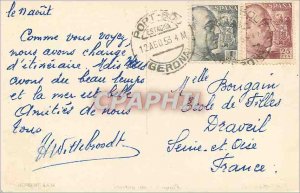 le 11 août
Comme vous voyez
nous avons changé
d'itinéraire. Mais nous
avons du beau temps
et la mer est belle
Amitiés de nous
tous
H Wittebroodt
PORT-BOU
12 AGO 53 4 M
GERONA
ESPAÑA
ESPAÑA
Melle Bougain
Ecole de Filles
Draveil
Seine-et-Oise
France.